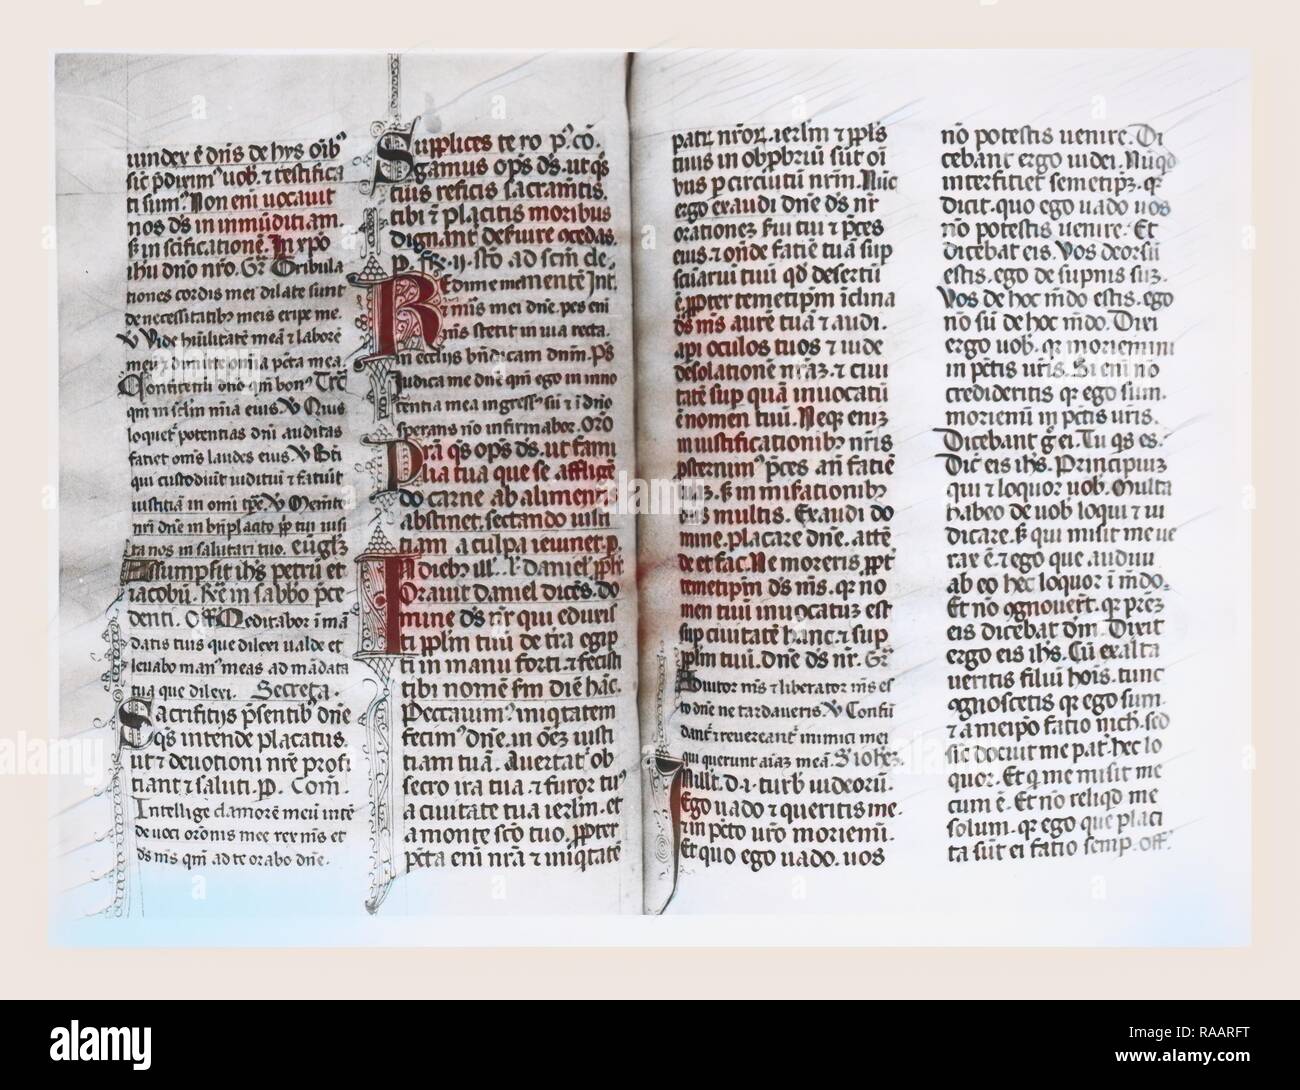 iundex ē dn̄s de hys oīb⁹
sic̄ p̄dixim⁹ uob. ⁊ testifica
ti sum⁹. Non eni uocauit
nos ds in inmūditiam.
ẜ in scificationē. In xp̄o
ihu dn̄o nr̄o. Gr̄. Tribula
tiones cordis mei dilate sunt
de necessitatibꝫ meis eripe me.
℣ Vide hūilitatē meā ⁊ laborē
meū ⁊ dimitte om̄ia pctā mea.
Confitemīi dn̄o qm̄ bon⁹ Trc̄
qm̄ in sclm̄ mīa eius. ℣ Quis
loquet̄ potentias dn̄i auditas
faciet om̄s laudes eius. ℣ Bti
qui custodiūt iudiciū ⁊ faciūt
iusticiā in omi tp̄e. ℣ Memēto
nr̄i dn̄e in bn̄placito pp̄li tui uisi
ta nos in salutari tuo. euglꝫ
Assumpsit ihs petrū et
iacobū. Re in sabbo p̄ce
denti. Off Meditabor ī mā
datis tuis que dilexi ualde et
leuabo man⁹ meas ad mādata
tua que dilexi. Secreta.
Sacrifitijs p̄sentib⁹ dn̄e
qs intende placatus.
ut ⁊ deuotioni nr̄e profi
tiant ⁊ saluti. P. Com̄.
Intellige clamorē meū intē
de uoci orōnis mee rex m̄s et
ds m̄s qm̄ ad te orabo dn̄e.
Supplices te ro P⁹ cō.
gamus op̄s ds. ut qs
tuis reficis sacramtīs.
tibi ⁊ placitis moribus
dignant̄ deseruire ↄcedas.
P. fer. ij. Stō ad scm̄ cle.
Redime me
⁊ m̄s mei dn̄e. pes eni
m̄s stetit in uia recta.
in eccliis bn̄dicam dn̄m. Ps
Iudica me dn̄e qm̄ ego in inno
centia mea ingress⁹ sū ⁊ ī dn̄o
sperans nō infirmabor. Orō
Prā qs op̄s ds. ut fami
lia tua que se affligē
do carne ab alimentis
abstinet. sectando iusti
tiam a culpa ieiunet. P.
In dieb⁹ ill. L. daniel. pph̄e
Orauit daniel dicēs. do
mine ds nr̄ qui eduxis
ti pp̄lm tuū de tr̄a egip
ti in manu forti. ⁊ fecisti
tibi nomē scm̄ diē hāc.
Peccauim⁹ iniqtatem
fecim⁹ dn̄e. in oēꝫ iusti
tiam tuā. Auertat̄ ob
secro ira tua. ⁊ furor tu⁹
a ciuitate tua ierlm̄. et
a monte sctō tuo. ppter
pctā eni nr̄a ⁊ iniqtatē
patꝝ nr̄oꝝ. ierlm̄ ⁊ pp̄ls
tuus in obpbriū sūt oī
bus p circuitū nr̄m. Nūc
ergo exaudi dn̄e ds nr̄
orationeꝫ sui tui ⁊ p̄ces
eius. ⁊ onde faciē tuā sup
sc̄tuariū tuū qd desertū
ē ppter temetipm̄ īclina
ds m̄s aurē tuā ⁊ audi.
api oculos tuos ⁊ uide
desolationē nr̄aꝫ. ⁊ ciui
tatē sup quā inuocatū
ē nomen tuū. Neqꝫ enīꝫ
in iustificationibꝫ nr̄is
psternim⁹ p̄ces an̄ faciē
tuaꝫ. ẜ in mis̄ationibꝫ
tuis multis. Exaudi do
mine. placare dn̄e. attē
de et fac. Ne moreris ppt̄
temetipm̄ ds m̄s. qꝛ no
men tuū inuocatuꝫ est
sup ciuitatē hanc. ⁊ sup
pp̄lm tuū. dn̄e ds nr̄. Gr̄
Adiutor m̄s ⁊ liberator m̄s es
to dn̄e ne tardaueris. ℣ Confū
dant̄ ⁊ reuereant̄ inimici mei
qui querunt aīaꝫ meā. S. iohēꝫ.
In ill. d. i. turbꝫ iudeorū.
Ego uado ⁊ queritis me.
⁊ in pctō uro moriemī.
Et quo ego uado. uos
nō potestis uenire. Di
cebant ergo iudei. Nūqd
interficiet semetipꝫ. qꝛ
dicit. quo ego uado uos
nō potestis uenire. Et
dicebat eis. Vos deorsū
estis. ego de supnis sūꝫ.
Vos de hoc mdo estis. ego
nō sū de hoc mdo. Dixi
ergo uob. qꝛ moriemini
in pctis uris. Si eni nō
credideritis qꝛ ego sum.
moriemī in pctis uris.
Dicebant g ei. Tu qs es.
Dic̄ eis ihs. Principiuꝫ
qui ⁊ loquor uob. Multa
habeo de uob loqui ⁊ iu
dicare. ẜ qui misit me ue
rax ē. ⁊ ego que audiui
ab eo hec loquor ī mdo.
Et nō ↄgnouerūt. qꝛ prēꝫ
eis dicebat dm̄. Dixit
ergo eis ihs. Cū exalta
ueritis filiū hoīs. tunc
ↄgnoscetis qꝛ ego sum.
⁊ a meipo facio nich. sed
sic̄ docuit me pat̄. hec lo
quor. Et q̄ me misit me
cum ē. Et nō reliqd me
solum. qꝛ ego que placi
ta sūt ei facio semp. off.
alamy
Image ID: RAARFT
www.alamy.com